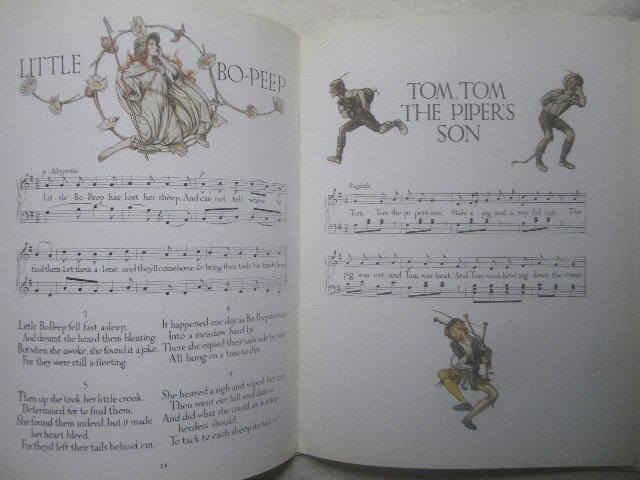 LITTLE BO-PEEP
p Allegretto p
Lit tle Bo-Peep has lost her sheep, And can not tell where to
find them. Let them a-lone, and they'll come home & bring their tails be-hind them
2
Little Bo-Peep fell fast asleep,
And dreamt she heard them bleating;
But when she awoke, she found it a joke,
For they were still a-fleeting.
3
Then up she took her little crook,
Determined for to find them.
She found them indeed, but it made
her heart bleed,
For they'd left their tails behind 'em.
4
It happened one day, as Bo-Peep did stray
Into a meadow hard by,
There she espied their tails side by side,
All hung on a tree to dry.
5
She heaved a sigh and wiped her eye,
Then went o'er hill and dale-o
And did what she could as a shep-
herdess should
To tack to each sheep its tail-o!
14
TOM, TOM
THE PIPER'S
SON
Brightly
Tom Tom, the piper's son, Stole a pig and a way did run. The
pig was eat, and Tom was beat, And Tom went howling down the street